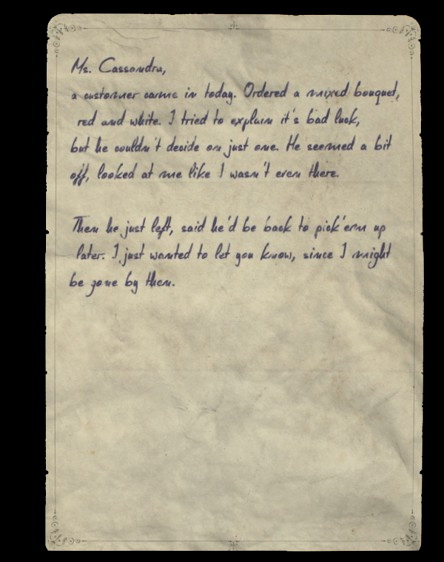 Ms. Cassandra,
a customer came in today. Ordered a mixed bouquet,
red and white. I tried to explain it's bad luck,
but he couldn't decide on just one. He seemed a bit
off, looked at me like I wasn't even there.
Then he just left, said he'd be back to pick'em up
later. I just wanted to let you know, since I might
be gone by then.